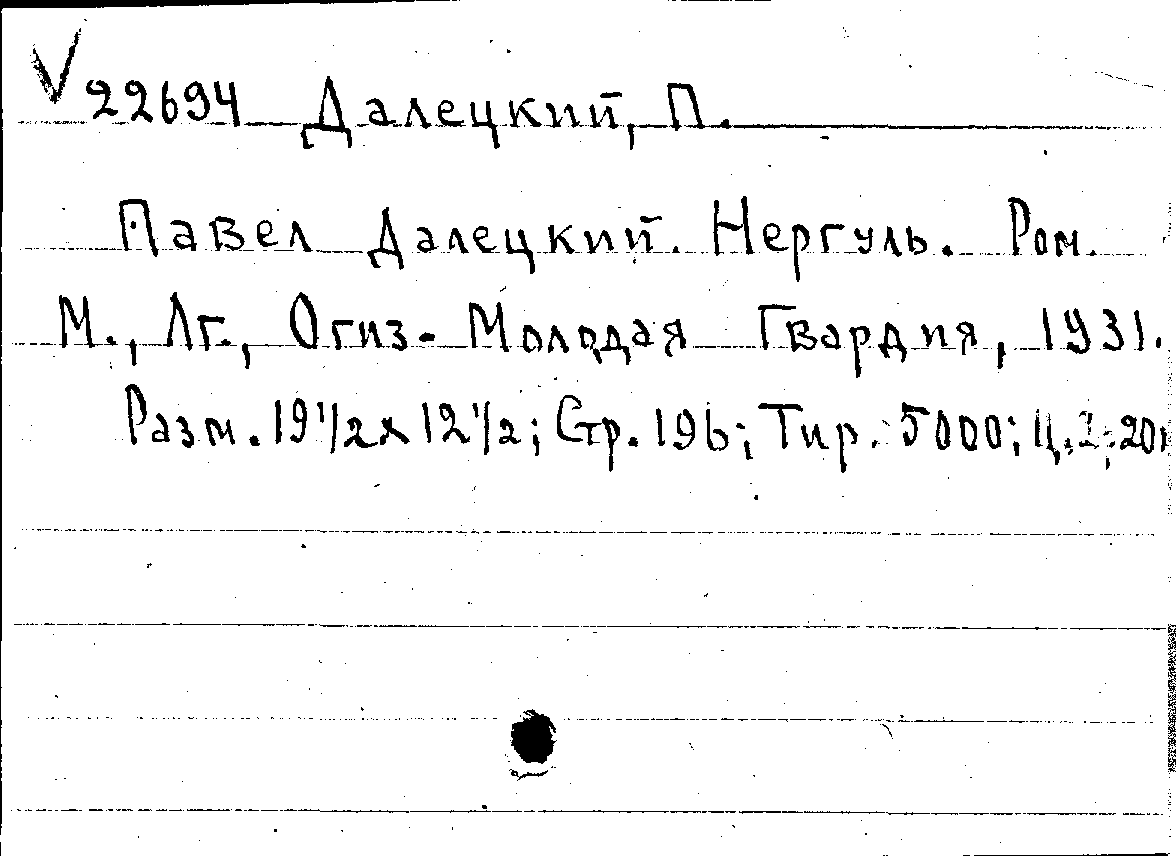 V 22694 Далецкий, П.
Павел Далецкий. Нергуль. Ром.
М., Лг., Огиз-Молодая Гвардия, 1931.
Разм. 19 1/2 x 12 1/2; Стр. 196; Тир. 5000; Ц.